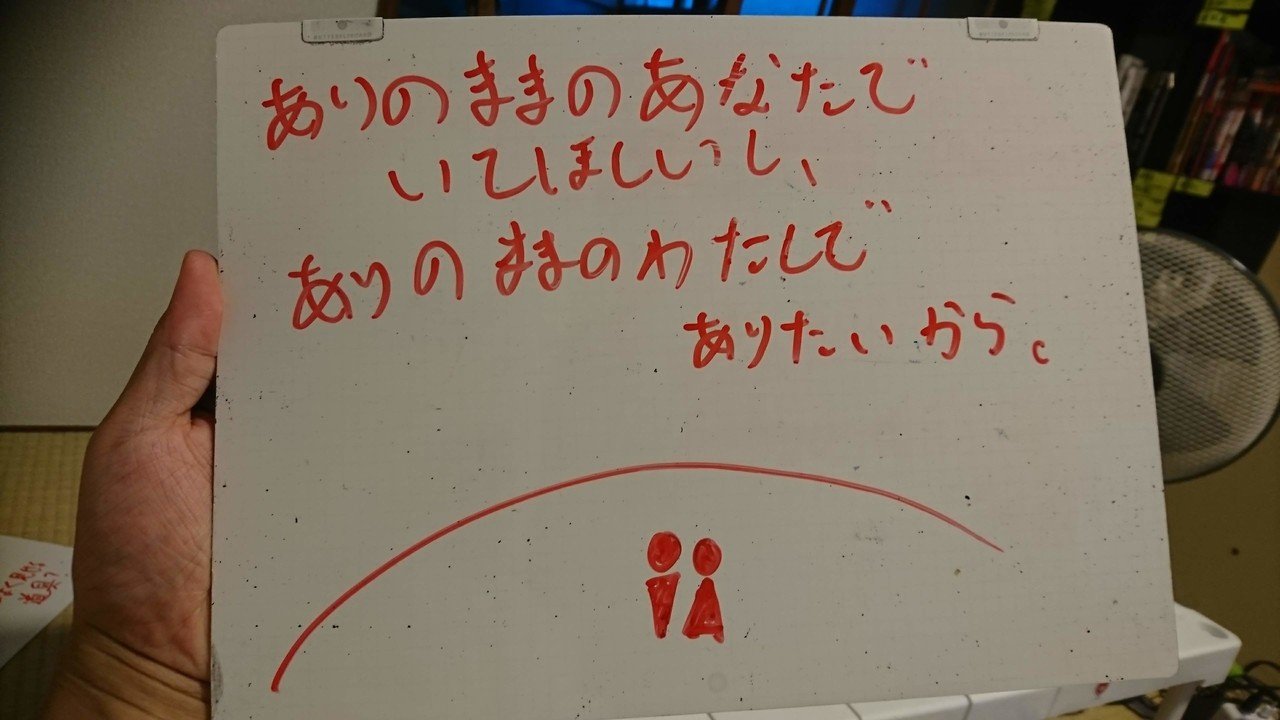 ありのままのあなたで
いてほしいし、
ありのままのわたしで
ありたいから。